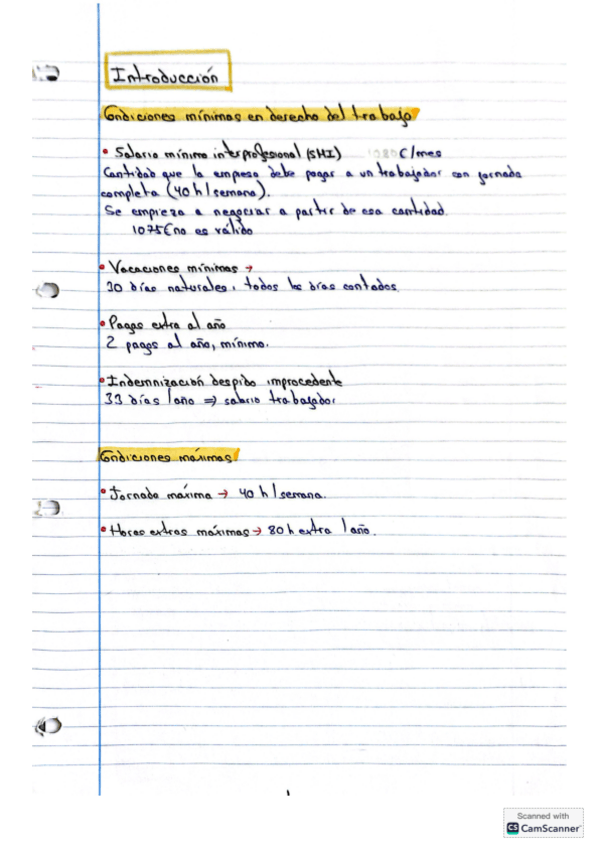 Introducción
Condiciones mínimas en derecho del trabajo
• Salario mínimo interprofesional (SMI) 1080€/mes
Cantidad que la empresa debe pagar a un trabajador con jornada
completa (40 h/semana).
Se empieza a negociar a partir de esa cantidad.
1075€ no es válido
• Vacaciones mínimas →
30 días naturales, todos los días contados
• Pagas extra al año
2 pagas al año, mínimo.
• Indemnización despido improcedente
33 días/año ⇒ salario trabajador
Condiciones máximas
• Jornada máxima → 40 h/semana.
• Horas extras máximas → 80 h extra/año.
1
Scanned with
CS CamScanner